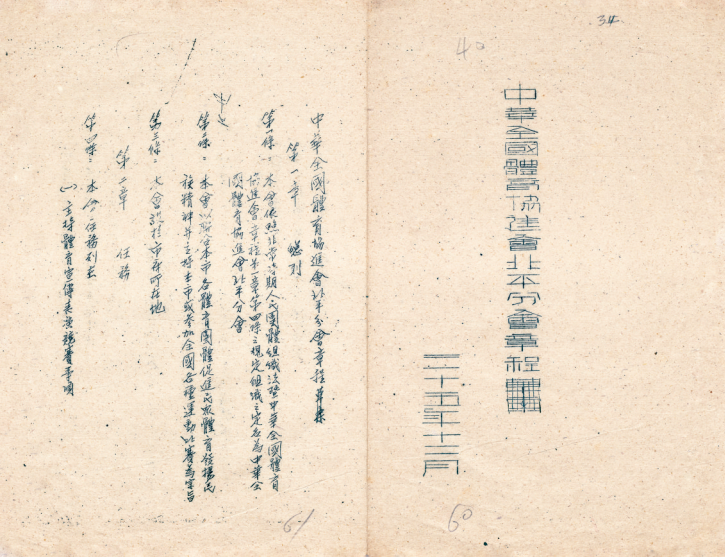 34
40
中華全國體育協進會北平分會章程草案
三十五年十二月
60
中華全國體育協進會北平分會章程草案
第一章 總則
第一條：本會依照非常時期人民團體組織法暨中華全國體育
協進會章程第一章第四條之規定組織之定名為中華全
國體育協進會北平分會
第二條：本會以聯合本市各體育團體促進民眾體育發揚民
族精神并主持本市或參加全國各種運動比賽為宗旨
第三條：本會設於市府所在地
第二章 任務
第四條：本會任務列左
㈠主持體育宣傳表演競賽事項
61